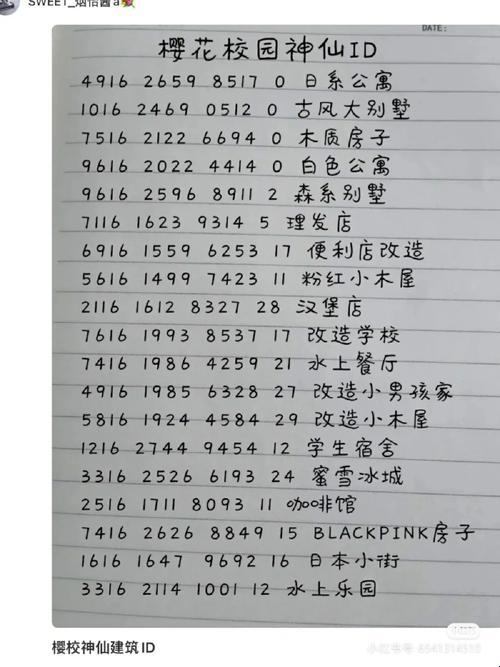 SWEET_烟怡酱a
DATE:
樱花校园神仙ID
4916 2659 8517 0 日系公寓
1016 2469 0512 0 古风大别墅
7516 2122 6694 0 木质房子
9616 2022 4414 0 白色公寓
9616 2596 8911 2 森系别墅
7116 1623 9314 5 理发店
6916 1559 6253 17 便利店改造
5616 1499 7423 11 粉红小木屋
2116 1612 8327 28 汉堡店
7616 1993 8537 17 改造学校
7416 1986 4259 21 水上餐厅
4916 1985 6328 27 改造小男孩家
5816 1924 4584 29 改造小木屋
1216 2744 9454 12 学生宿舍
3316 2526 6193 24 蜜雪冰城
2516 1711 8093 11 咖啡馆
7416 2626 8849 15 BLACKPINK房子
1616 1647 9692 16 日本小街
3316 2114 1001 12 水上乐园
樱校神仙建筑ID